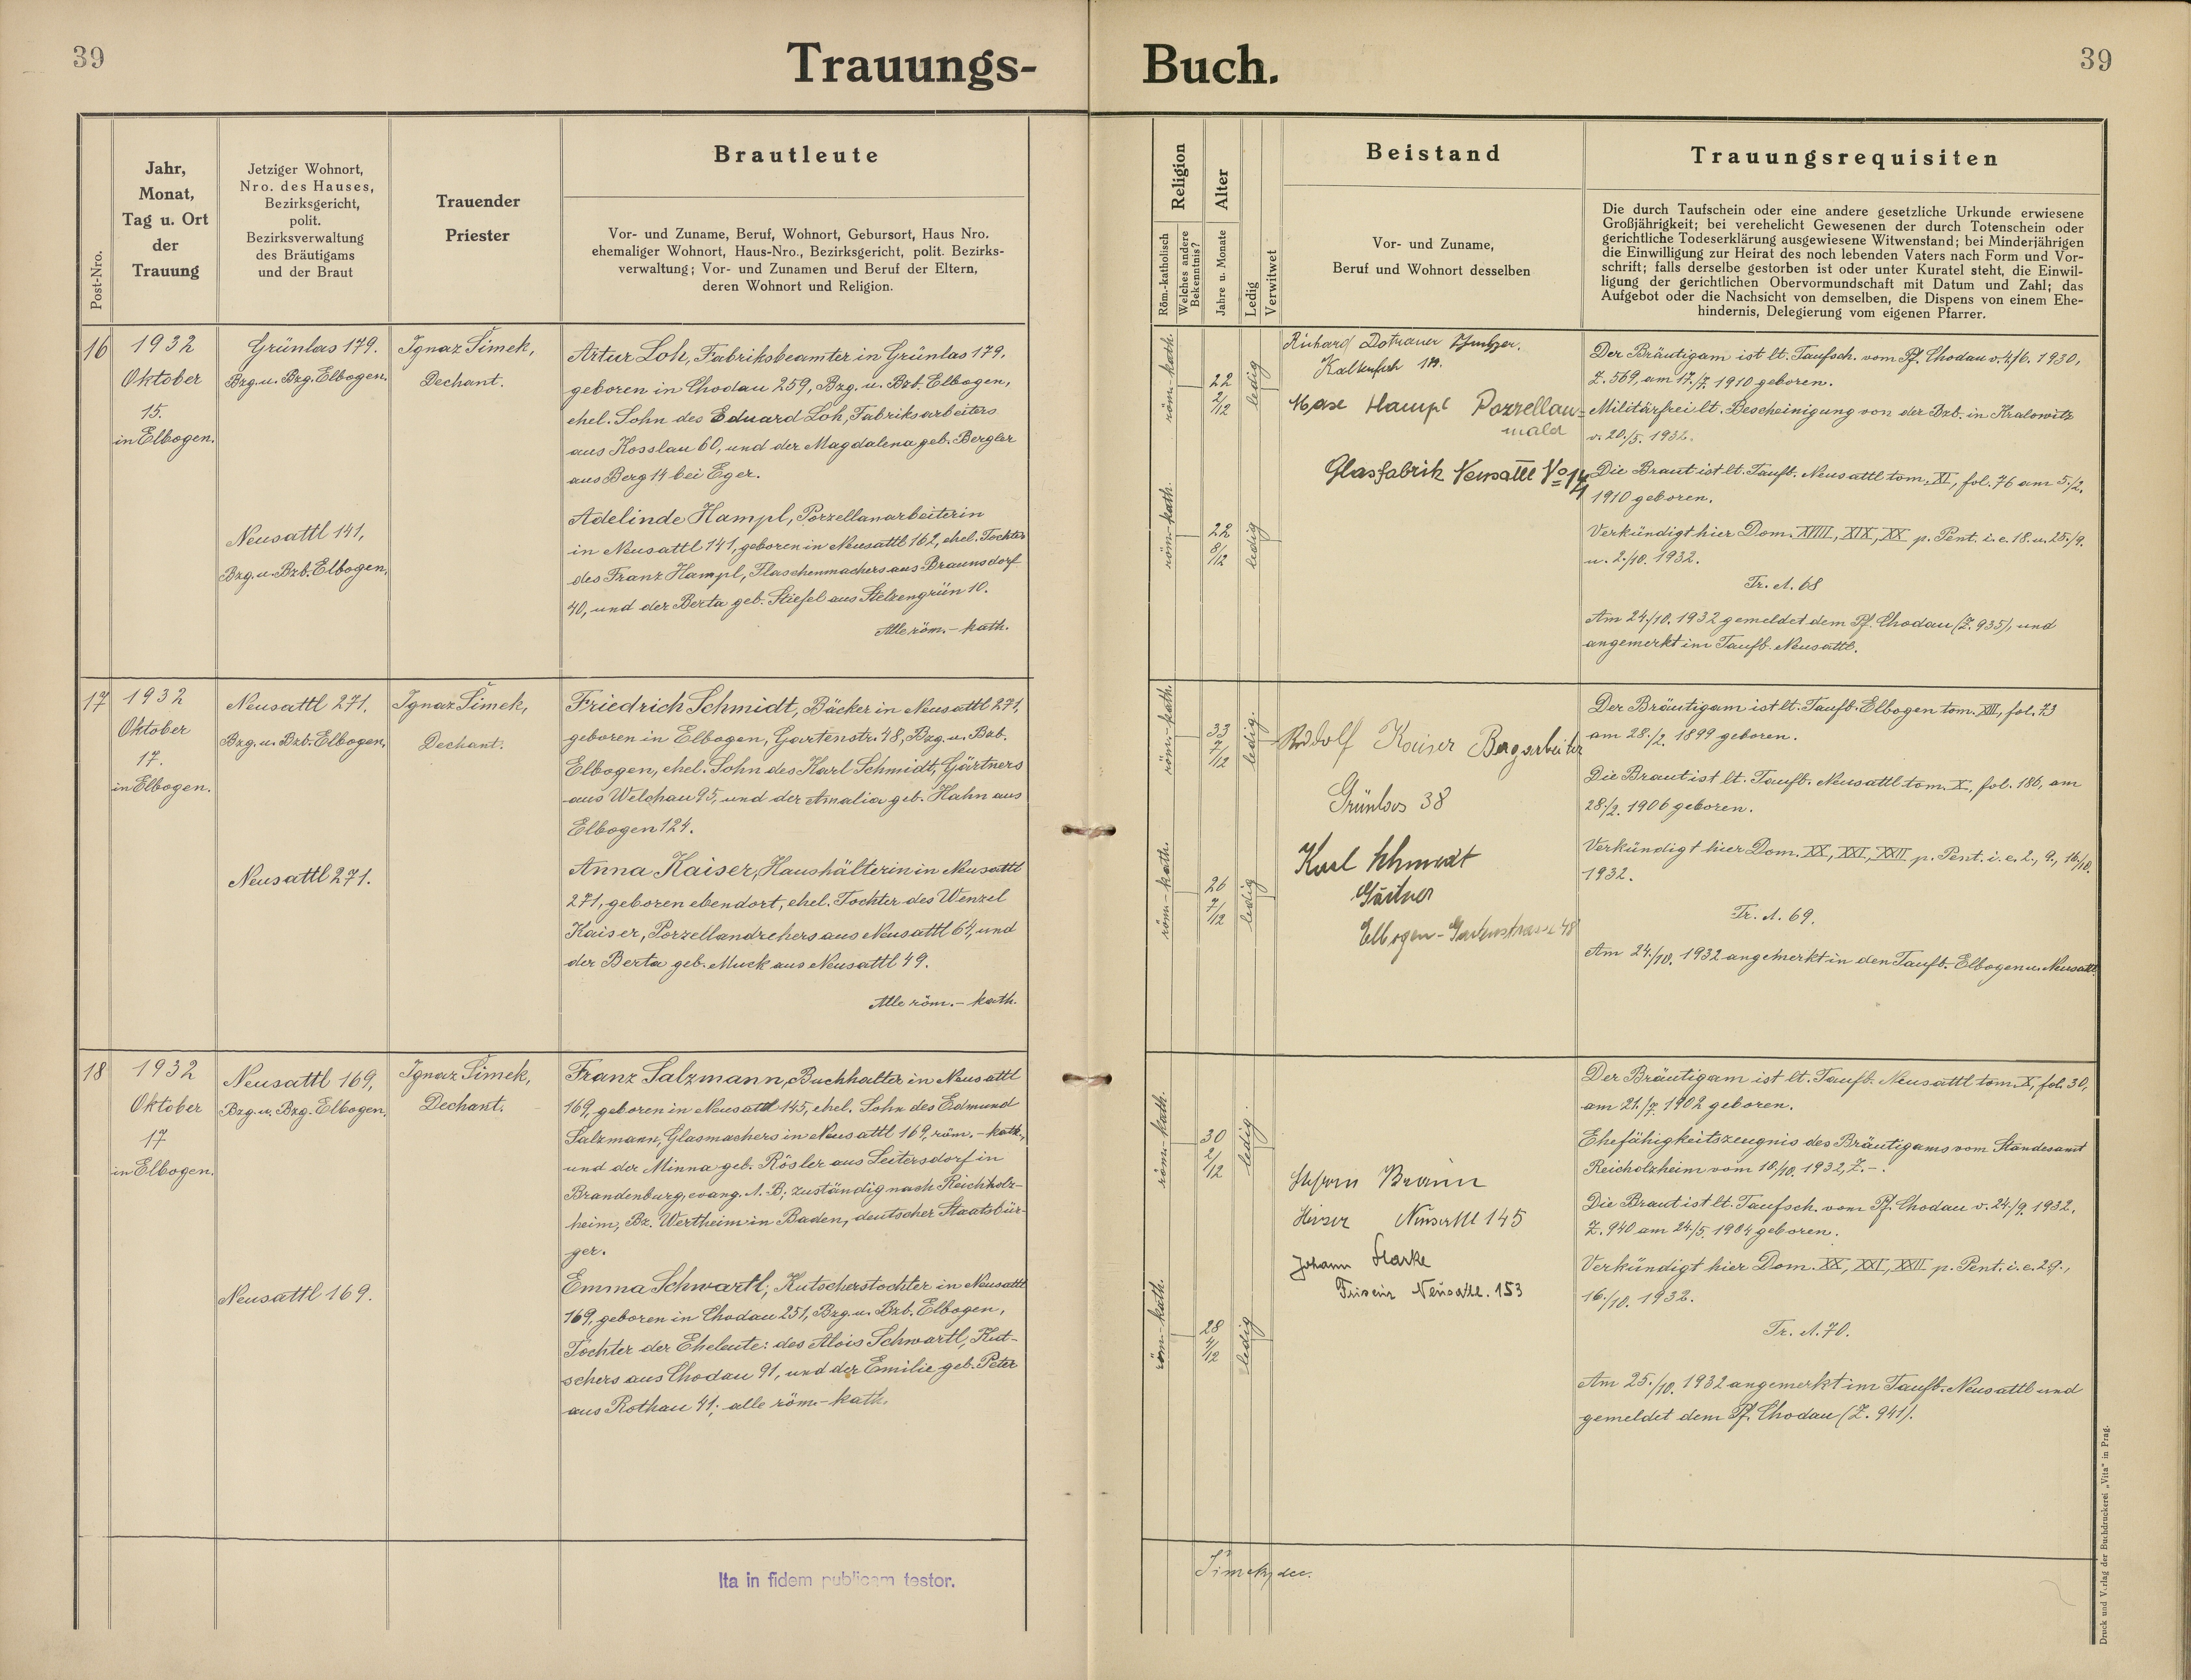 39
Trauungs-
Post-Nro.
Jahr,
Monat,
Tag u. Ort
der
Trauung
Jetziger Wohnort,
Nro. des Hauses,
Bezirksgericht,
polit.
Bezirksverwaltung
des Bräutigams
und der Braut
Trauender
Priester
Brautleute
Vor- und Zuname, Beruf, Wohnort, Gebursort, Haus Nro.
ehemaliger Wohnort, Haus-Nro., Bezirksgericht, polit. Bezirks-
verwaltung; Vor- und Zunamen und Beruf der Eltern,
deren Wohnort und Religion.
16
1932
Oktober
15.
in Elbogen.
Grünlas 179.
Bzg. u. Bzg. Elbogen.
Neusattl 141,
Bzg. u. Bzb. Elbogen.
Ignaz Šimek,
Dechant.
Artur Loh, Fabriksbeamter in Grünlas 179,
geboren in Chodau 259, Bzg. u. Bzb. Elbogen,
ehel. Sohn des Eduard Loh, Fabriksarbeiters
aus Kosslau 60, und der Magdalena geb. Bergler
aus Berg 14 bei Eger.
Adelinde Hampl, Porzellanarbeiterin
in Neusattl 141, geboren in Neusattl 162, ehel. Tochter
des Franz Hampl, Flaschenmachers aus Braunsdorf
40, und der Berta geb. Stiefel aus Stelzengrün 10.
Alle röm.-kath.
17
1932
Oktober
17.
in Elbogen.
Neusattl 271.
Bzg. u. Bzb. Elbogen.
Neusattl 271.
Ignaz Šimek,
Dechant.
Friedrich Schmidt, Bäcker in Neusattl 271,
geboren in Elbogen, Gartenstr. 48, Bzg. u. Bzb.
Elbogen, ehel. Sohn des Karl Schmidt, Gärtners
aus Welchau 95, und der Amalia geb. Hahn aus
Elbogen 124.
Anna Kaiser, Haushälterin in Neusattl
271, geboren ebendort, ehel. Tochter des Wenzel
Kaiser, Porzellandrehers aus Neusattl 64, und
der Berta geb. Muck aus Neusattl 49.
Alle röm.-kath.
18
1932
Oktober
17
in Elbogen.
Neusattl 169,
Bzg. u. Bzg. Elbogen.
Neusattl 169.
Ignaz Šimek,
Dechant.
Franz Salzmann, Buchhalter in Neusattl
169, geboren in Neusattl 145, ehel. Sohn des Edmund
Salzmann, Glasmachers in Neusattl 169, röm.-kath.,
und der Minna geb. Rösler aus Leitersdorf in
Brandenburg, evang. A. B; zuständig nach Reichholz-
heim, Bz. Wertheim in Baden, deutscher Staatsbür-
ger.
Emma Schwartl, Kutscherstochter in Neusattl
169, geboren in Chodau 251, Bzg. u. Bzb. Elbogen,
Tochter der Eheleute: des Alois Schwartl, Kut-
schers aus Chodau 91, und der Emilie geb. Peter
aus Rothau 41; alle röm.-kath.
Ita in fidem publicam testor.
Buch.
39
Religion
Röm.-katholisch
Welches andere
Bekenntnis?
Alter
Jahre u. Monate
Ledig
Verwitwet
Beistand
Vor- und Zuname,
Beruf und Wohnort desselben
Trauungsrequisiten
Die durch Taufschein oder eine andere gesetzliche Urkunde erwiesene
Großjährigkeit; bei verehelicht Gewesenen der durch Totenschein oder
gerichtliche Todeserklärung ausgewiesene Witwenstand; bei Minderjährigen
die Einwilligung zur Heirat des noch lebenden Vaters nach Form und Vor-
schrift; falls derselbe gestorben ist oder unter Kuratel steht, die Einwil-
ligung der gerichtlichen Obervormundschaft mit Datum und Zahl; das
Aufgebot oder die Nachsicht von demselben, die Dispens von einem Ehe-
hindernis, Delegierung vom eigenen Pfarrer.
röm.-kath.
22
2/12
ledig
röm.-kath.
22
8/12
ledig
Richard
Hampl Porzellan-
Glasfabrik Neusattl No 14
Der Bräutigam ist lt. Taufsch. vom Pf. Chodau v. 4./6. 1930,
Z. 569, am 17./7. 1910 geboren.
Militärfrei lt. Bescheinigung von der Bzb. in Kralowitz
v. 20./5. 1932.
Die Braut ist lt. Taufb. Neusattl tom. XI, fol. 76 am 5./2.
1910 geboren.
Verkündigt hier Dom. XVIII, XIX, XX p. Pent. i. e. 18. u. 25./9.
u. 2./10. 1932.
Tr. A. 68
Am 24./10. 1932 gemeldet dem Pf. Chodau (Z. 935), und
angemerkt im Taufb. Neusattl.
röm.-kath.
33
7/12
ledig.
röm.-kath.
26
7/12
ledig
Rudolf Kaiser Bergarbeiter
Grünlas 38
Karl Schmidt
Gärtner
Elbogen - Gartenstrasse 48
Der Bräutigam ist lt. Taufb. Elbogen tom. XIII, fol. 73
am 28./2. 1899 geboren.
Die Braut ist lt. Taufb. Neusattl tom. X, fol. 186, am
28./2. 1906 geboren.
Verkündigt hier Dom. XX, XXI, XXII p. Pent. i. e. 2., 9., 16./10.
1932.
Tr. A. 69.
Am 24./10. 1932 angemerkt in den Taufb. Elbogen u. Neusattl.
röm.-kath.
30
2/12
ledig.
röm.-kath.
28
4/12
ledig
Braun
Neusattl 145
Johann Starke
Friseur Neusattl. 153
Der Bräutigam ist lt. Taufb. Neusattl tom. X, fol. 30,
am 21./7. 1902 geboren.
Ehefähigkeitszeugnis des Bräutigams vom Standesamt
Reicholzheim vom 10./10. 1932, Z. -.
Die Braut ist lt. Taufsch. vom Pf. Chodau v. 24./9. 1932,
Z. 940 am 24./5. 1904 geboren.
Verkündigt hier Dom. XX, XXI, XXII p. Pent. i. e. 2 9.,
16./10. 1932.
Tr. A. 70.
Am 25./10. 1932 angemerkt im Taufb. Neusattl und
gemeldet dem Pf. Chodau (Z. 941).
Šimek, dec.
Druck und Verlag der Buchdruckerei „Vita" in Prag.